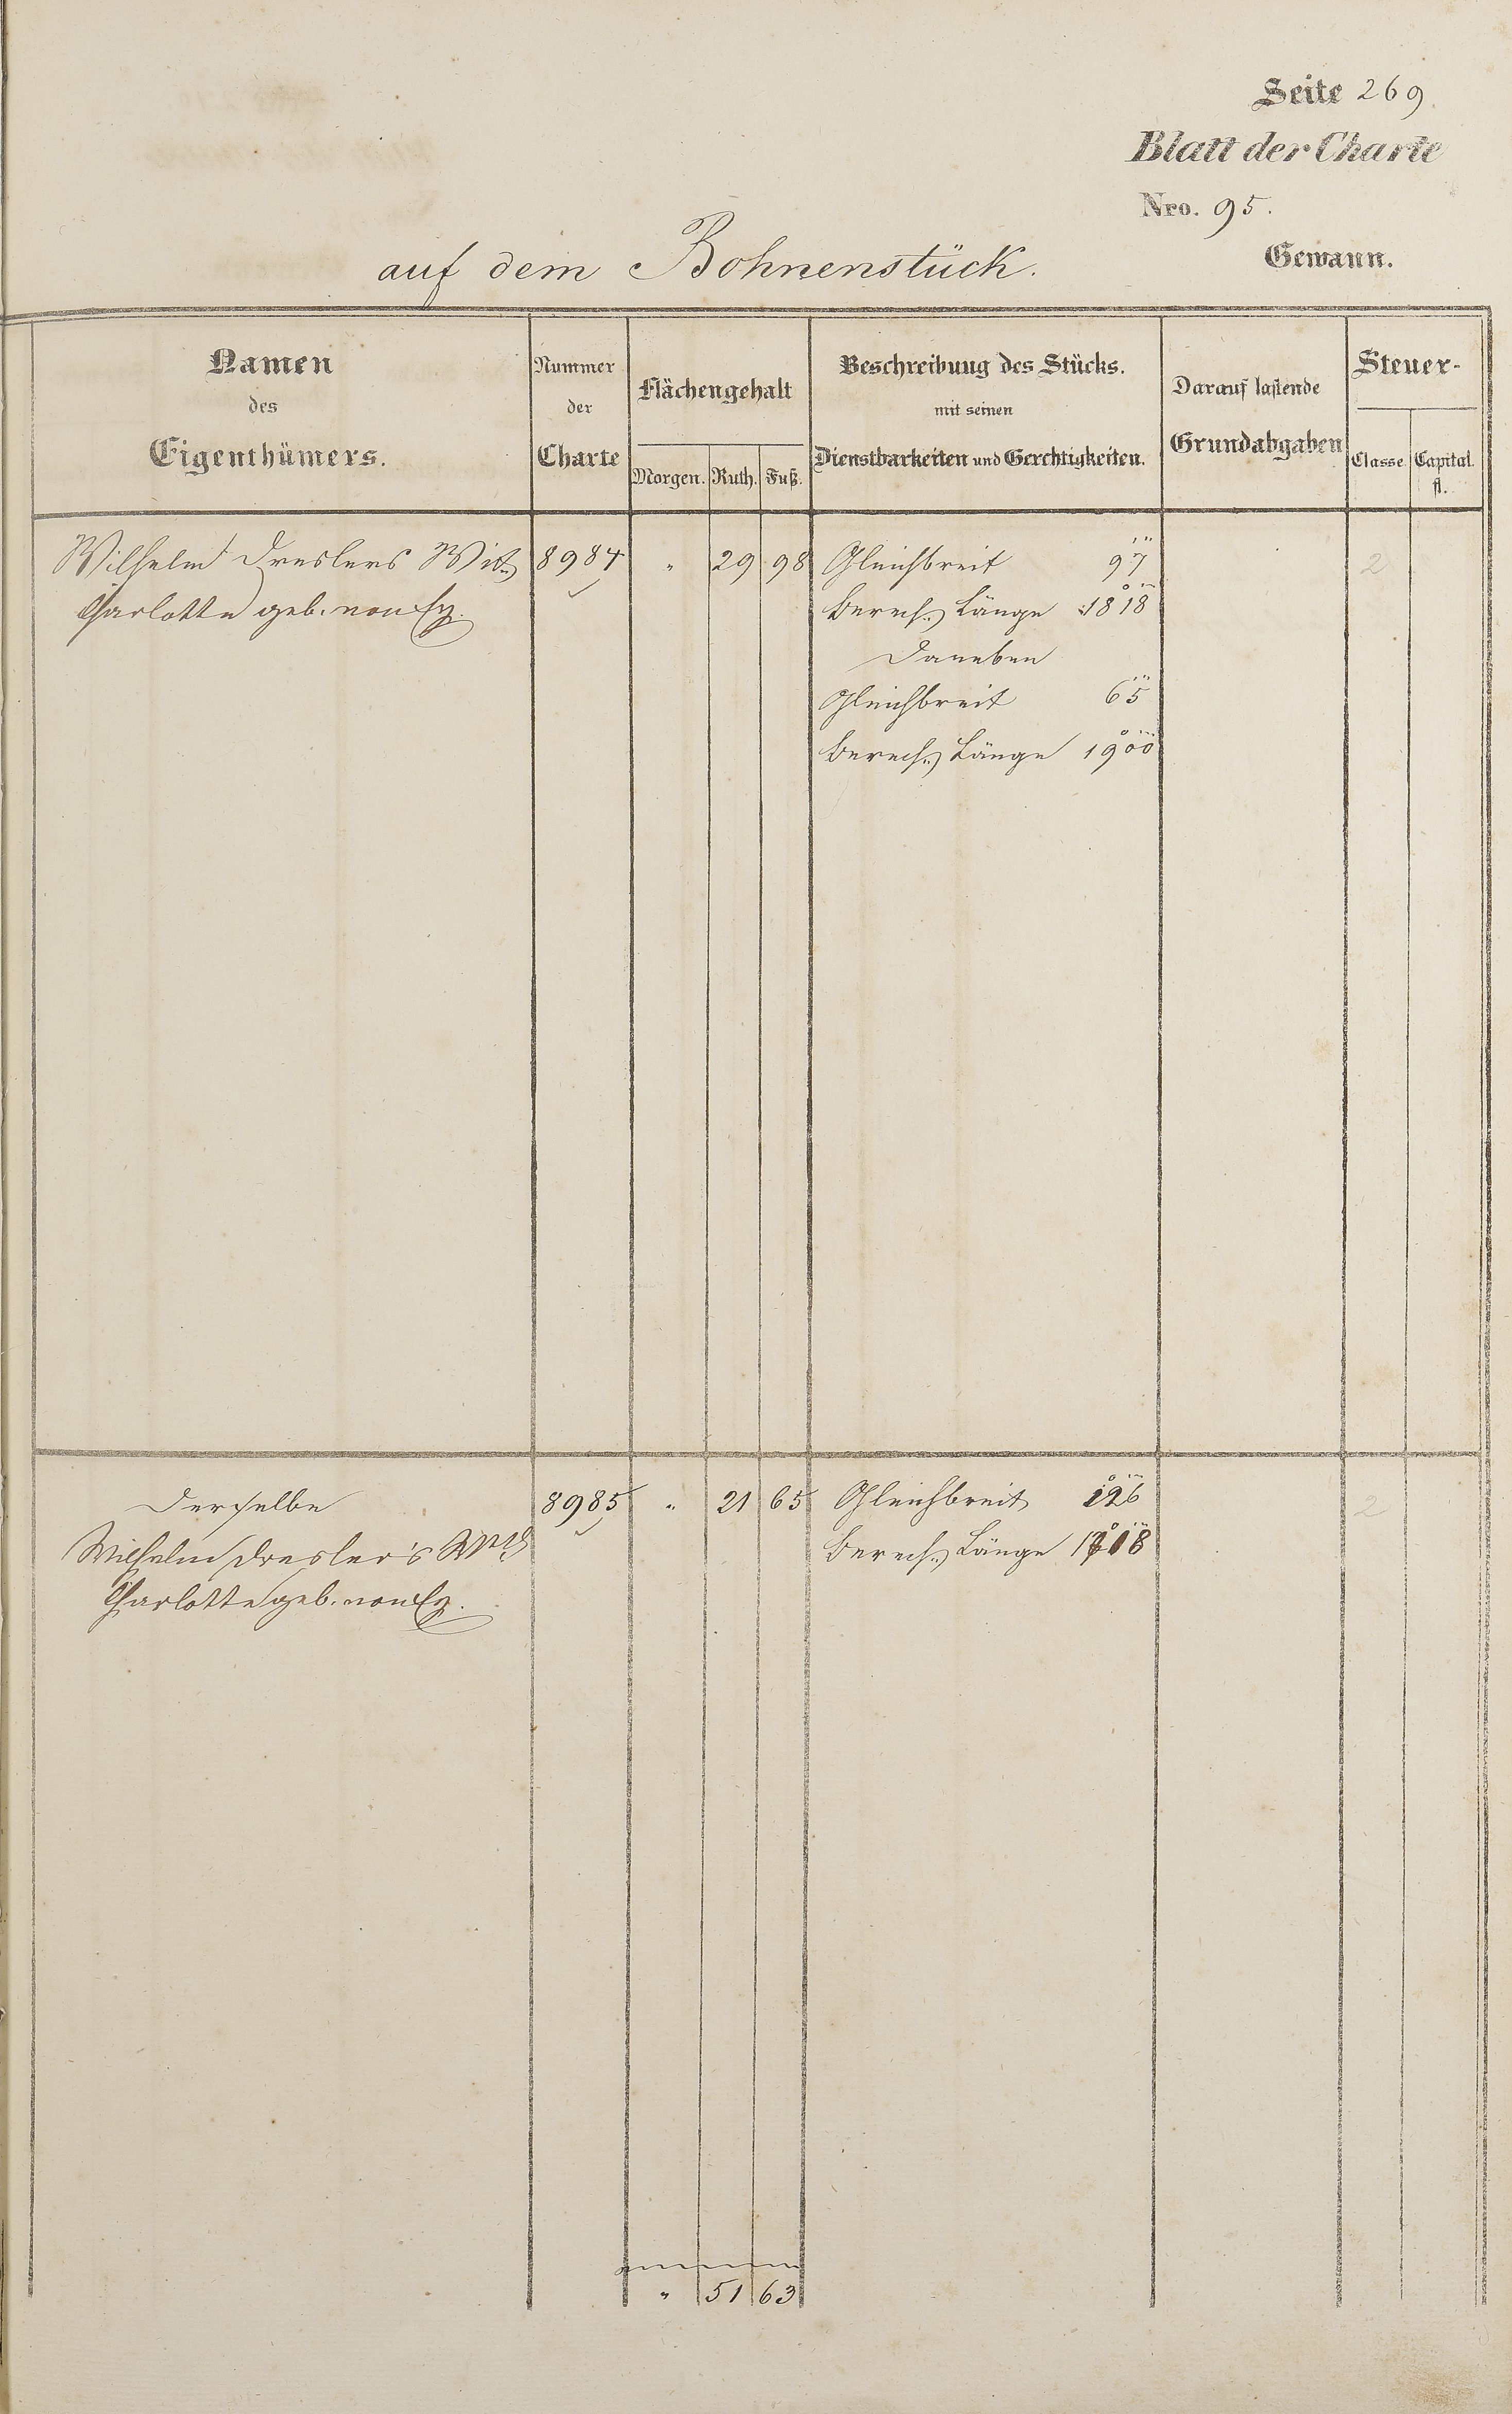 Seite 269.
Blatt der Charte
Nro. 95.
auf dem Bohnenstück. Gewann.
Namen des Eigenthümers.
Nummer der Charte
Flächengehalt
Morgen. Ruth. Fuß.
Beschreibung des Stücks.
mit seinen
Dienstbarkeiten und Gerechtigkeiten.
Darauf lastende
Grundabgaben
Steuer-
Classe. Capital. fl.
Wilhelm Dreslers Wit. 8984 " 29 98 Gleichbreit 97 2
Charlotte geb. von Berech. Länge 1818
Daneben
Gleichbreit 65
Berech. Länge 1900
Derselbe 8985 " 21 65 Gleichbreit 126 2
Wilhelm Dresler's Berech. Länge
Charlotte geb. von
" 51 63